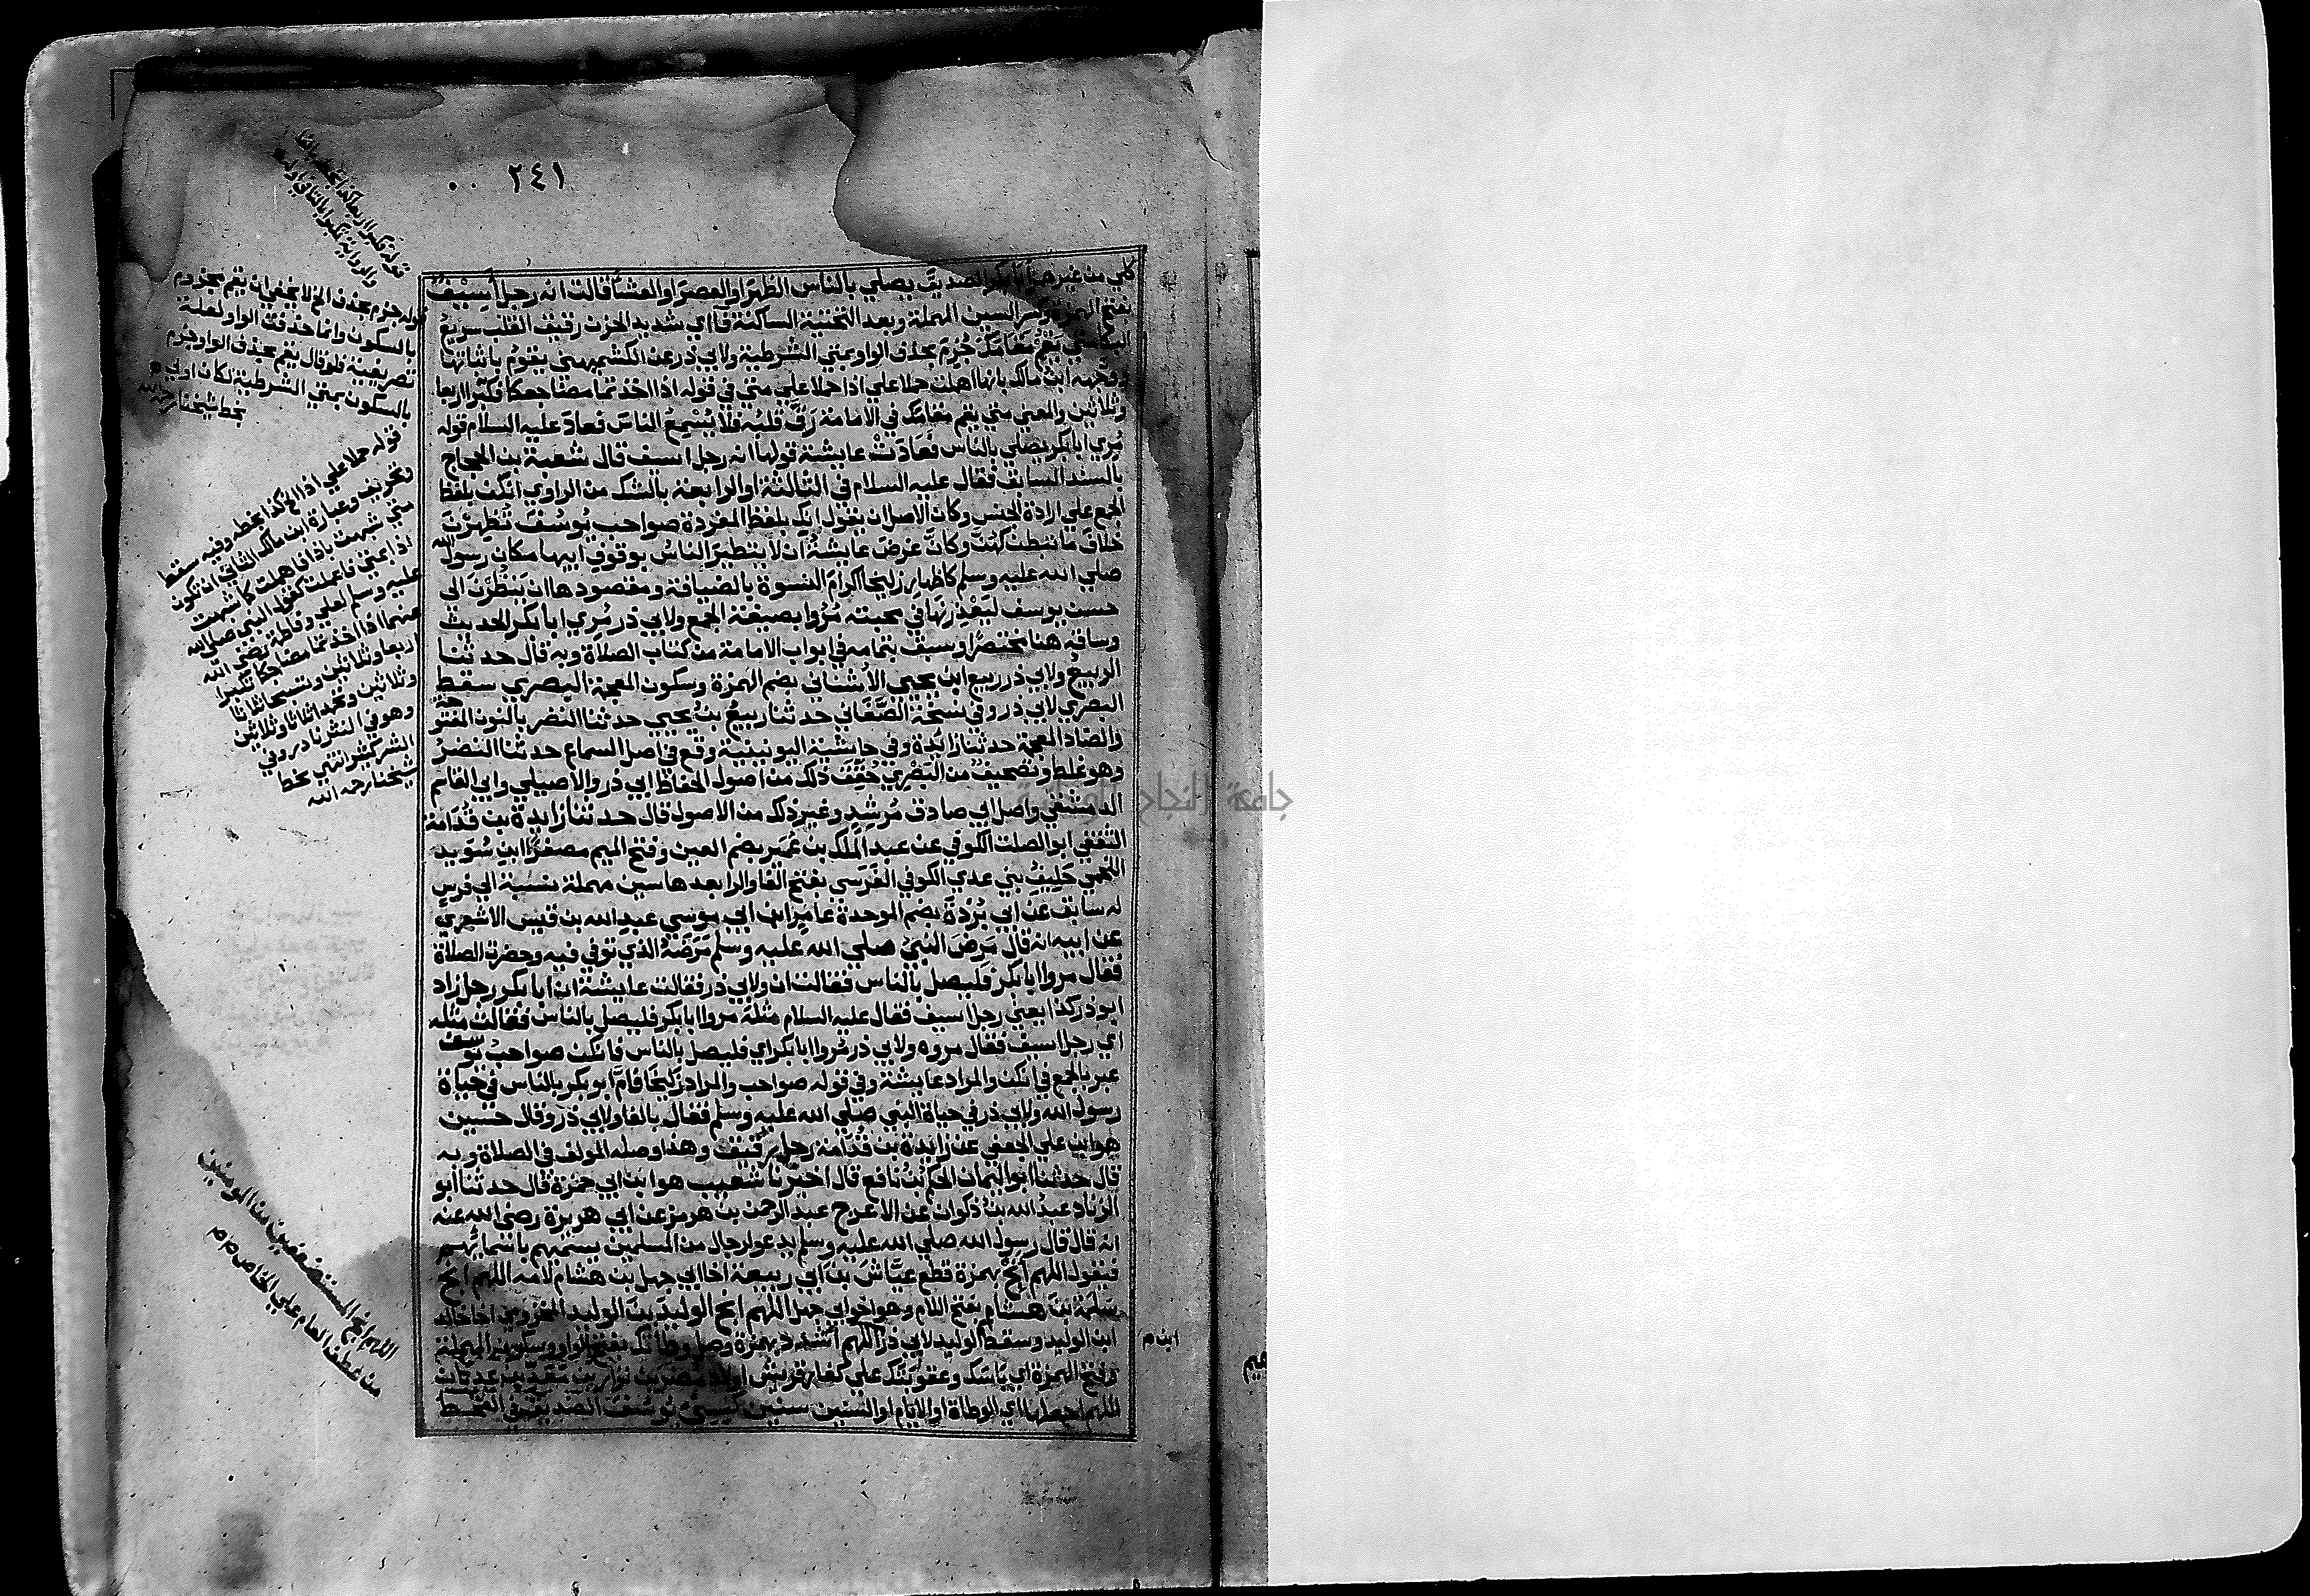 ٢٤١
كلي من غيرها أبا بكر الصديق يصلي بالناس الظهر او العصر او العشا قالت انه رجل أَسِيْفٌ
بفتح الهمزة وكسر السين المهملة وبعد التحتية الساكنة فا اي شديد الحزن رقيق القلب سريع
البكا متي يقم مقامك جُزِمَ بحذف الواو بمتي الشرطية ولابي ذر عن الكشميهني يقومُ باثباتها
ووجهه ابن مالك بانها اهملت حملا علي اذا حملا علي متي في قوله اذا اخذتما مضاجعكما فكبرا اربعا
وثلاثين والمعني متي يقم مقامك في الامامة رَقَّ قلبُه فلا يُسْمِعُ الناسَ فعادَ عليه السلام قوله
مُرِي ابا بكر يصلي بالناس فَعَادَتْ عايشة قولها انه رجل اسيف قال شعبة بن الحجاج
بالسند السابق فقال عليه السلام في الثالثة او الرابعة بالشك من الراوي انكن بلفظ
الجمع علي ارادة الجنس وكان الاصل ان يقول انك بلفظ المفردة صواحب يُوسُفَ تُظهِرْنَ
خلافَ ما تبطن كهُنَّ وكانَ غرضَ عايشةُ ان لا يتطير الناسُ بوقوف ابيها مكان رسول الله
صلي الله عليه وسلم كاظهارِ زليخا اكرامَ النسوة بالضيافة ومقصودها ان يَنظُرْنَ الى
حسن يوسف ليَعْذِرنَها في محبته مُرُوا بصيغة الجمع ولابي ذر مُرِي ابا بكر الحديث
وساقه هنا مختصرًا وسبق بتمامه في ابواب الامامة من كتاب الصلاة وبه قال حدثنا
الربيعُ ولابي ذر ربيع ابن يحيي الاُشناني بضم الهمزة وسكون المعجمة البصري سقط
البصري لابي ذر وفي نسخة الصَّغَاني حدثنا ربيعُ بنُ يحيي حدثنا النضر بالنون المفتوحة
والضاد المعجمة حدثنا زائدة وفي حاشية اليونينية وقع في اصل السماع حدثنا النضرُ
وهو غلط وتصحيف من البَصْرِي حُقِّقَ ذلك من اصول الحفاظ ابي ذر والاصيلي وابي القاسم
الدمشقي واصل ابي صادق مُرشِدٍ وغير ذلك من الاصول قال حدثنا زايدة بن قُدَامَة
الثقفي ابو الصلت الكوفي عن عبد الملك بن عُمَير بضم العين وفتح الميم مصغرًا ابن سُوَيد
اللخمي حَلِيفِ بني عدي الكوفي الفَرَسي بفتح الفا والرا بعدها سين مهملة نسبة الي فرس
له سابق عن ابي بُرْدَةَ بضم الموحدة عامِر ابن ابي موسي عبدِ الله بن قيس الاشعري
عن ابيه انه قال مَرِضَ النبيُ صلي الله عليه وسلم مَرَضَهُ الذي توفي فيه وحضرت الصلاة
فقال مروا ابا بكر فليصل بالناس فقالت ان ولابي ذر فقالت عايشة ان ابا بكر رجل زاد
ابو ذر كذا يعني رجل اسيف فقال عليه السلام مثلَه مروا ابا بكر فليصل بالناس فقالت مثله
اي رجل اسيف فقال مروه ولابي ذر مُروا ابا بكر اي فليصل بالناس فانكن صواحبُ يوسف
عبر بالجمع في انكن والمراد عايشة وفي قوله صواحب والمراد زليخا فامَّ ابو بكر بالناس في حياة
رسول الله ولابي ذر في حياة النبي صلي الله عليه وسلم فقال بالفا ولابي ذر وقال حسين
هو ابن علي الجعفي عن زايدة بن قُدَامة رجل رقيق وهذا وصله المولف في الصلاة وبه
قال حدثنا ابو اليمان الحكم بن نافع قال اخبرنا شعيب هو ابن ابي حمزة قال حدثنا ابو
الزناد عبدُ الله بن ذكوان عن الاعرج عبد الرحمن بن هرمز عن ابي هريرة رضي الله عنه
انه قال قال رسول الله صلي الله عليه وسلم يدعو لرجال من المسلمين يسميهم باسمايهم
فيقول اللهم انج بهمزة قطع عيَّاشَ بن ابي ربيعة اخا ابي جهل بن هشام لامه اللهم انج
سلمةَ بنَ هشام بفتح اللام وهو اخو ابي جهل اللهم انج الوليدَ بنَ الوليد المخزومي اخا خالد
ابن الوليد وسقط الوليد لابي ذر اللهم اشدد بهمزة وصل وطاتك بفتح الواو وسكون المهملة
وفتح الهمزة اي باسك وعقوبتك علي كفار قريش اولاد مضر بن نزار بن معد بن عدنان
اللهم اجعلها اي الوطاة او الايام او السنين سنين كسِني يوسُفَ الصديق في القحط
ابن م
قوله فكبرا اربعا كذا بخطه بالفا
والرواية تكبرا بالتا في اوله
قوله جزم بحذف الخ لا يخفي ان يقم مجزوم
بالسكون وانما حذفت الواو لعلة
تصريفية فلو قال يقم بحذف الواو وجزم
بالسكون بمتي الشرطية لكان اولي
بخط شيخنا رحمه الله
قوله حملا علي اذا الخ كذا بخطه وفيه سقط
وتحريف وعبارة ابن مالك الثاني ان تكون
متي شبهت باذا فاهملت كما شبهت
اذا بمتي فاعملت كقول النبي صلي الله
عليه وسلم لعلي وفاطمة رضي الله
عنهما اذا اخذتما مضاجعكما تكبرا
اربعا وثلاثين وتسبحا ثلاثا
وثلاثين وتحمدا ثلاثا وثلاثين
وهو في النثر نادر وفي
الشعر كثير انتهي بخط
شيخنا رحمه الله
اللهم انج المستضعفين من المومنين
من عطف العام علي الخاص م م
جامعة النجاح الوطنية